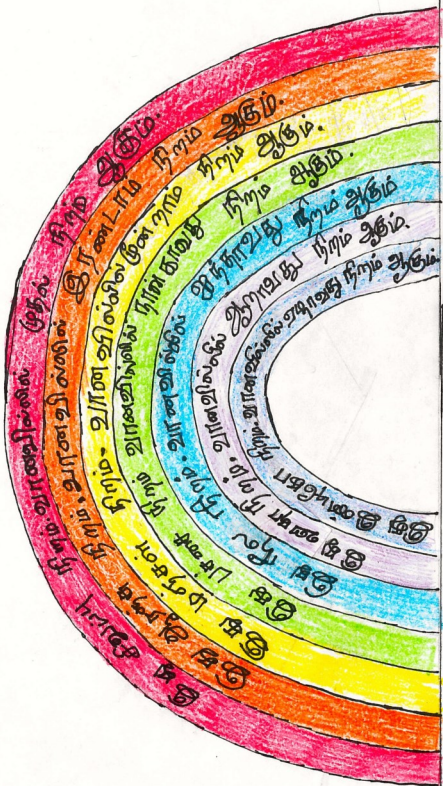 இது சிவப்பு நிறம் வானவில்லில் முதல் நிறம் ஆகும்.
இது ஆரஞ்சு நிறம். வானவில்லில் இரண்டாம் நிறம் ஆகும்.
இது மஞ்சள் நிறம். வானவில்லில் மூன்றாம் நிறம் ஆகும்.
இது பச்சை நிறம் வானவில்லில் நான்காவது நிறம் ஆகும்.
இது நீல நிறம். வானவில்லில் ஐந்தாவது நிறம் ஆகும்
இது ஊதா நிறம். வானவில்லில் ஆறாவது நிறம் ஆகும்.
இது நிறம். வானவில்லில் ஏழாவது நிறம் ஆகும்.